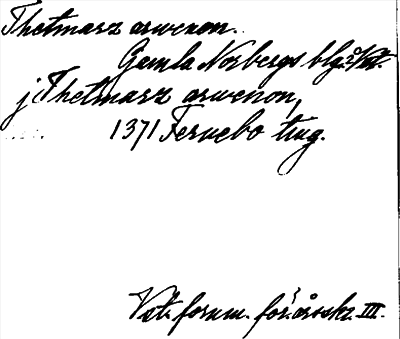 Thetmarz arwenon.
Gamla Norbergs blg.
j Thetmarz arwenon,
1371 Fernebo ting.
Vst. fornm. för. årsskr. III.